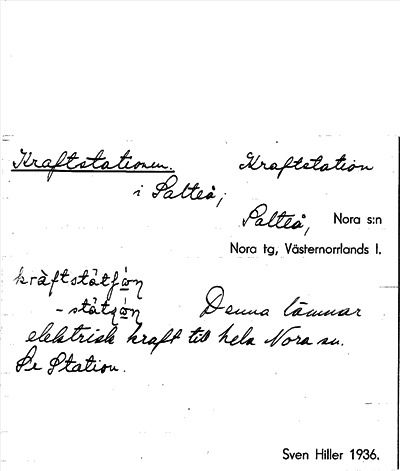 Kraftstationen. Kraftstation
i Salteå,
Salteå, Nora s:n
Nora tg, Västernorrlands l.
Denna lämnar
elektrisk kraft till hela Nora sn.
Se Station.
Sven Hiller 1936.